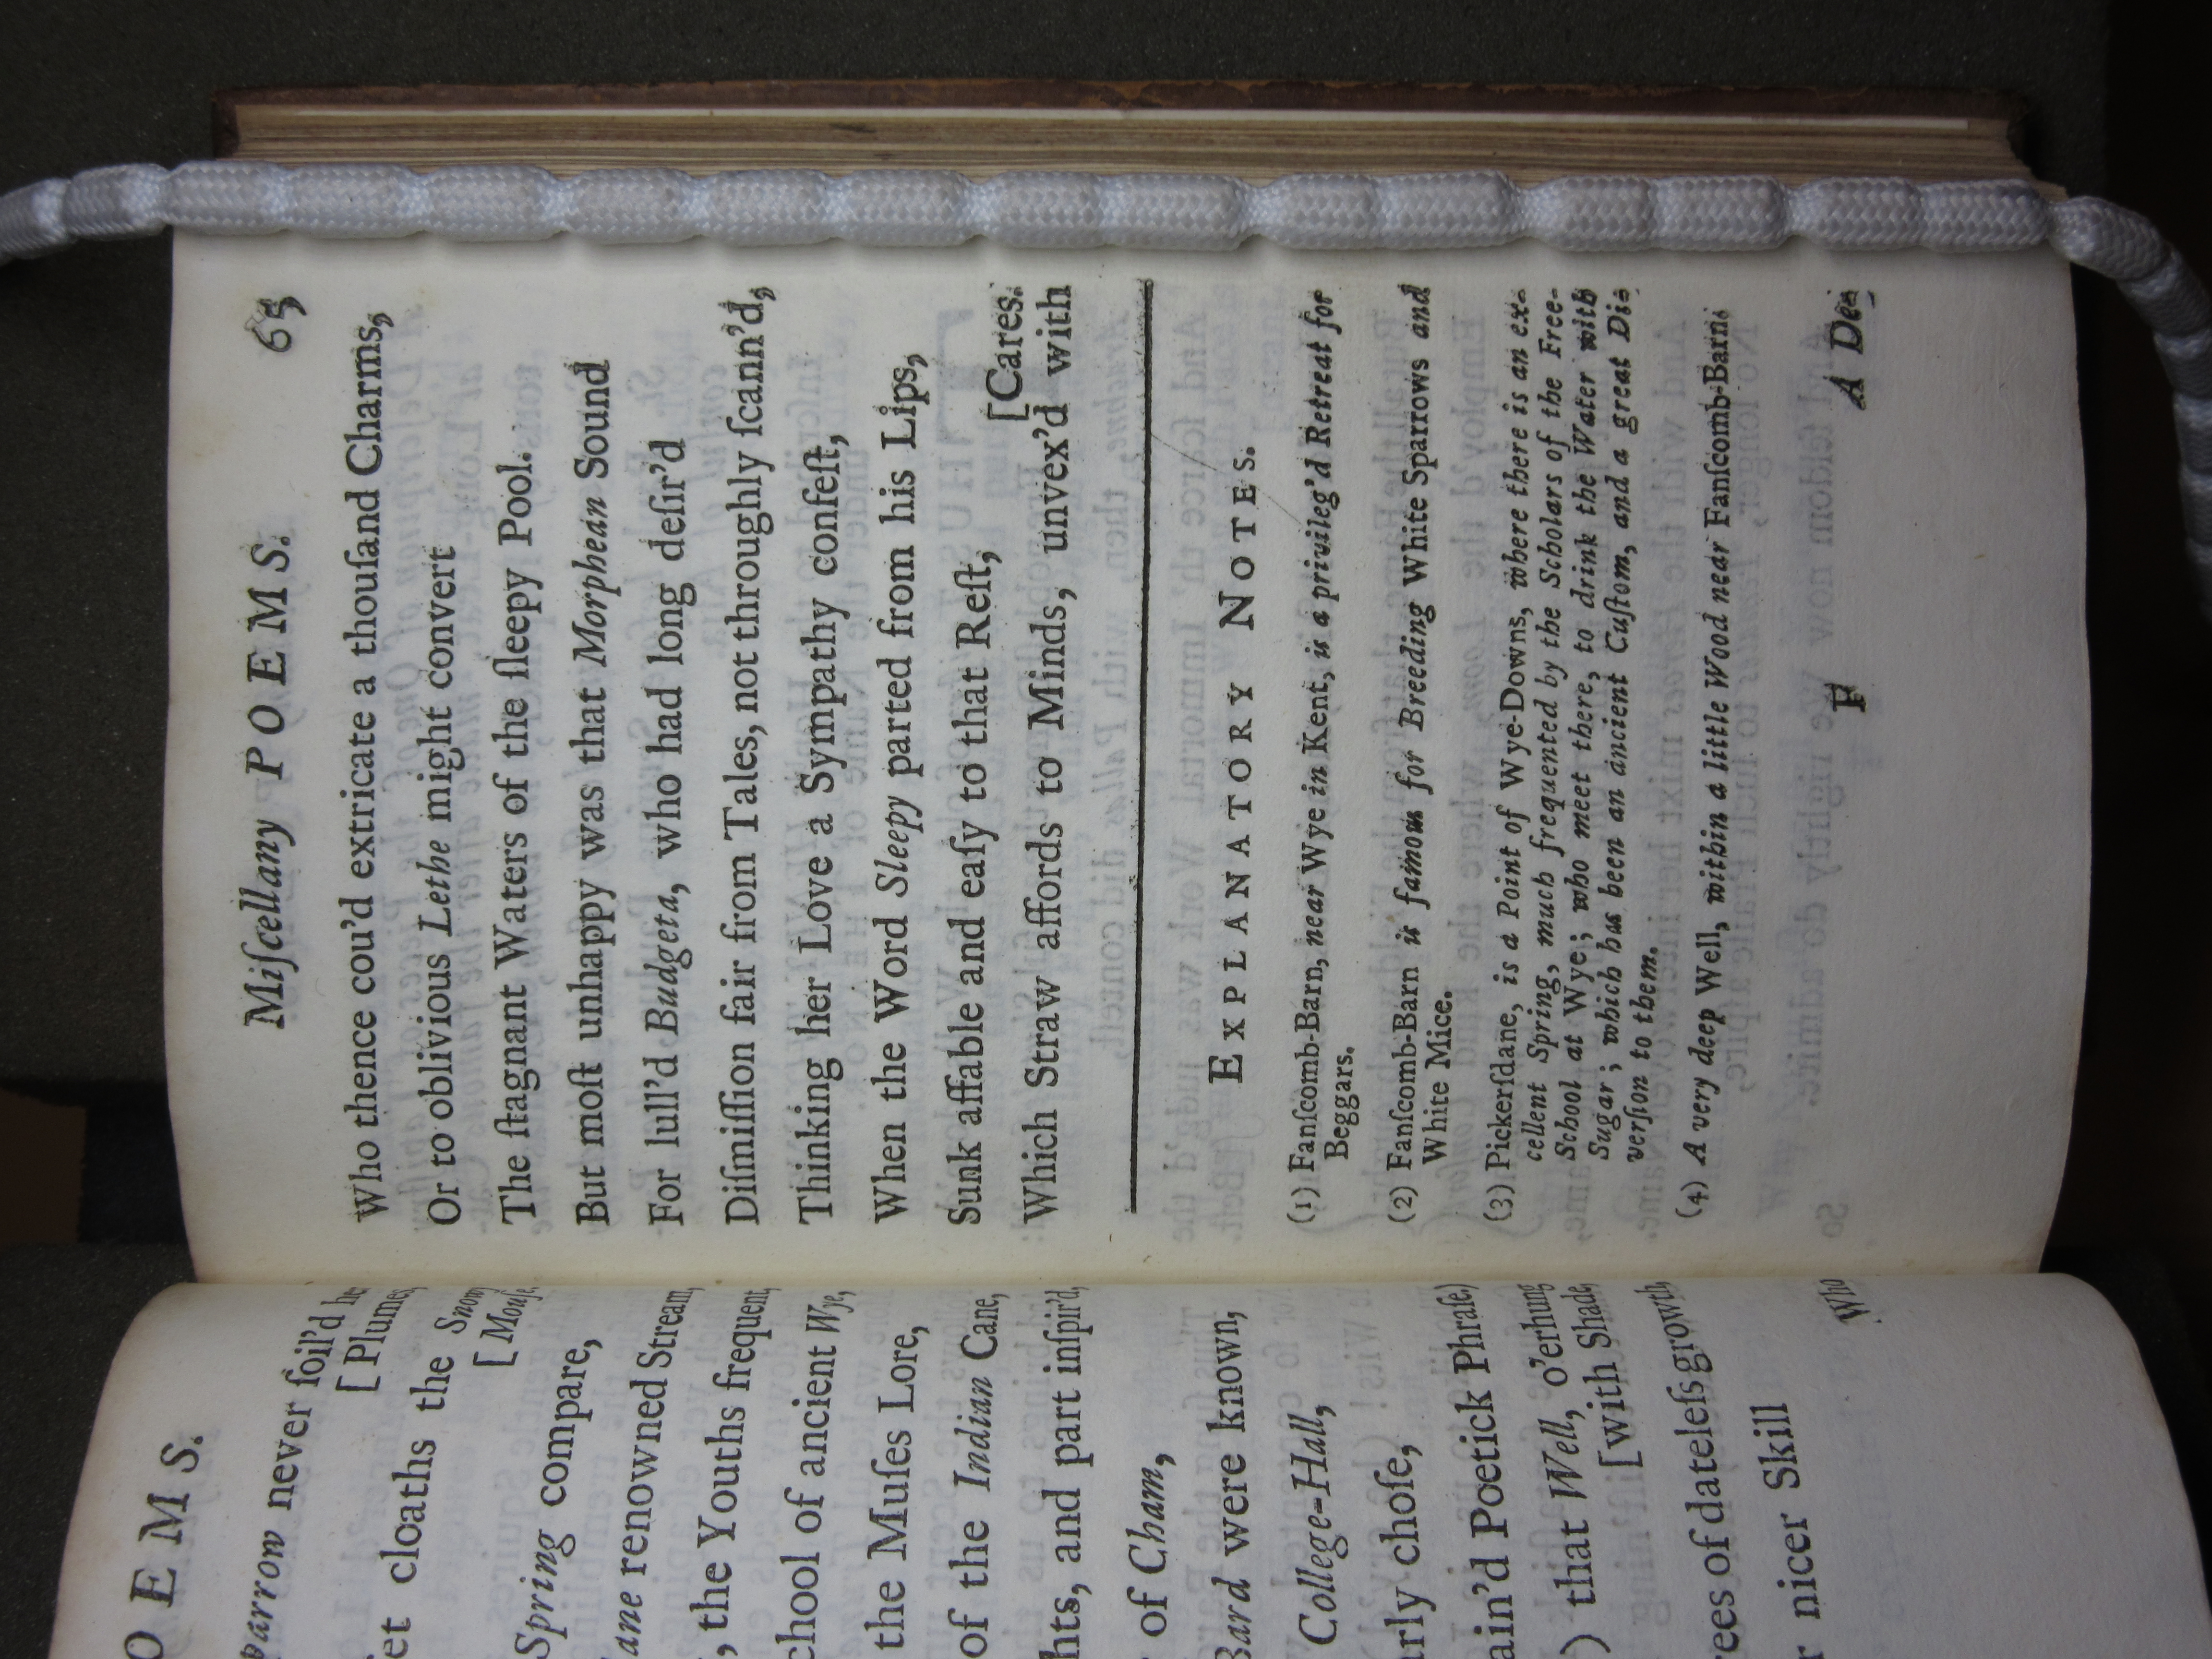 OEMS.
parrow never ſoil'd he
[Plume,
et cloaths the Snowy
[Mouſe.
Spring compare,
ane renowned Stream,
, the Youths frequent,
chool of ancient Wye,
the Muſes Lore,
of the Indian Cane,
hts, and part inſpir'd,
of Cham,
Bard were known,
College-Hall,
arly choſe,
ain'd Poetick Phraſe)
) that Well, o'erhung
[with Shade,
ees of dateleſs growth,
r nicer Skill
Who
Miſcellany POEMS. 65
Who thence cou'd extricate a thouſand Charms,
Or to oblivious Lethe might convert
The ſtagnant Waters of the ſleepy Pool.
But moſt unhappy was that Morphean Sound
For lull'd Budgeta, who had long deſir'd
Diſmiſſion fair from Tales, not throughly ſcann'd,
Thinking her Love a Sympathy confeſt,
When the Word Sleepy parted from his Lips,
Sunk affable and eaſy to that Reſt,
[Cares.
Which Straw affords to Minds, unvex'd with
EXPLANATORY NOTES.
(1) Fanſcomb-Barn, near Wye in Kent, is a privileg'd Retreat for
Beggars.
(2) Fanſcomb-Barn is famous for Breeding White Sparrows and
White Mice.
(3) Pickerſdane, is a Point of Wye-Downs, where there is an ex-
cellent Spring, much frequented by the Scholars of the Free-
School at Wye; who meet there, to drink the Water with
Sugar; which has been an ancient Cuſtom, and a great Di-
verſion to them.
(4) A very deep Well, within a little Wood near Fanſcomb-Barn.
F A Deſ-